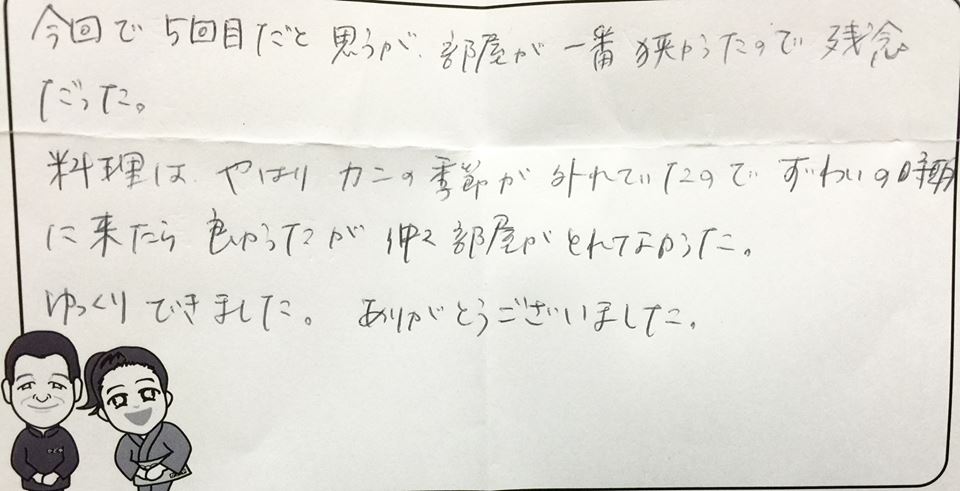 今回で5回目だと思うが、部屋が一番狭かったので残念
だった。
料理は、やはりカニの季節が外れていたので ずわいの時期
に来たら良かったが 仲々部屋がとれてなかった。
ゆっくりできました。 ありがとうございました。